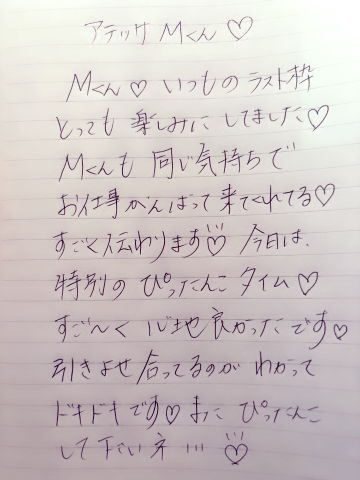 アテッサ Mくん♡
Mくん♡いつものラスト枠
とっても楽しみにしてました♡
Mくんも同じ気持ちで
お仕事がんばって来てくれてる♡
すごく伝わります♡今日は、
特別のぴったんこタイム♡
すご〜く心地良かったです♡
引きよせ合ってるのがわかって
ドキドキです♡またぴったんこ
して下さいネ…♡